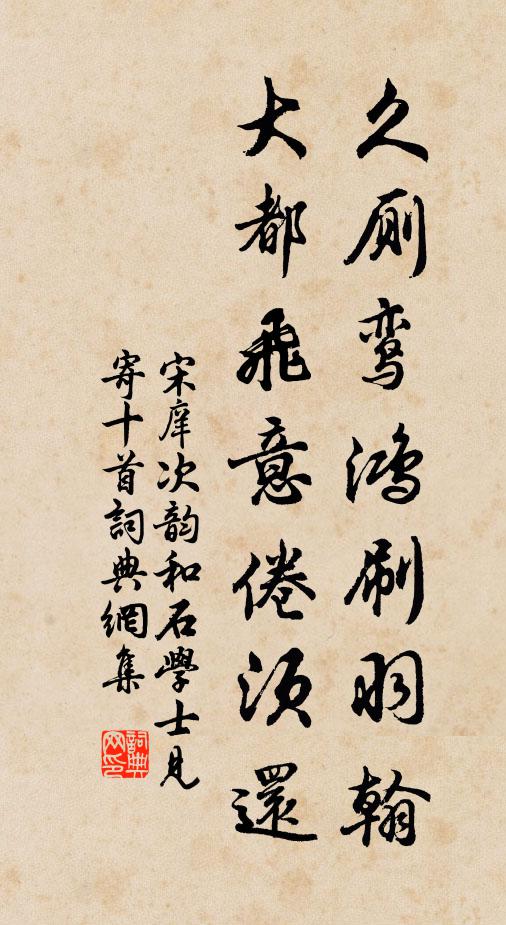 久厠鸾鴻刷羽翰
大都飛意倦須還
宋庠次韵和石學士見
寄十首詞典網集
詞典
网印